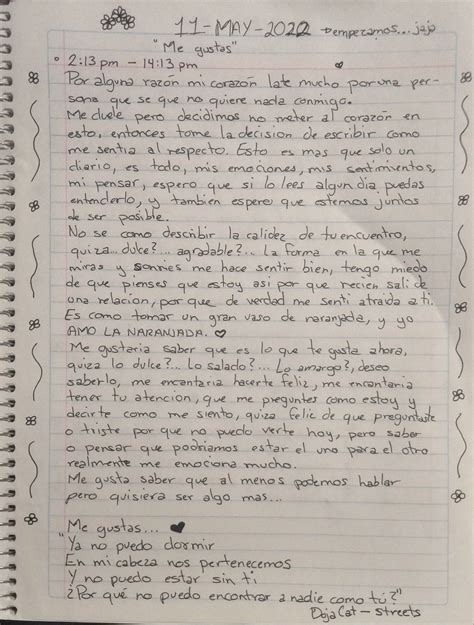 11-MAY-2022 → empezamos... jajo
"Me gustas"
° 2:13 pm - 14:13 pm
Por alguna razón mi corazón late mucho por una per-
sona que se que no quiere nada conmigo.
Me duele pero decidimos no meter al corazón en
esto, entonces tome la decision de escribir como
me sentia al respecto. Esto es mas que solo un
diario, es todo, mis emociones, mis sentimientos,
mi pensar, espero que si lo lees algun dia puedas
entenderlo, y tambien espero que estemos juntos
de ser posible.
No se como describir la calidez de tu encuentro,
quiza... dulce?... agradable?... La forma en la que me
miras y sonries me hace sentir bien, tengo miedo
de que pienses que estoy asi por que recien sali de
una relacion, por que de verdad me senti atraida a ti.
Es como tomar un gran vaso de naranjada, y yo
AMO LA NARANJADA. ♡
Me gustaria saber que es lo que te gusta ahora,
quiza lo dulce?... Lo salado?... Lo amargo?, deseo
saberlo, me encantaria hacerte feliz, me encantaria
tener tu atención, que me preguntes como estoy y
decirte como me siento, quiza feliz de que preguntaste
o triste por que no puedo verte hoy, pero saber
o pensar que podriamos estar el uno para el otro
realmente me emociona mucho.
Me gusta saber que al menos podemos hablar
pero quisiera ser algo mas...
Me gustas... ♥
"Ya no puedo dormir
En mi cabeza nos pertenecemos
Y no puedo estar sin ti
¿Por qué no puedo encontrar a nadie como tú?"
Doja Cat - Streets